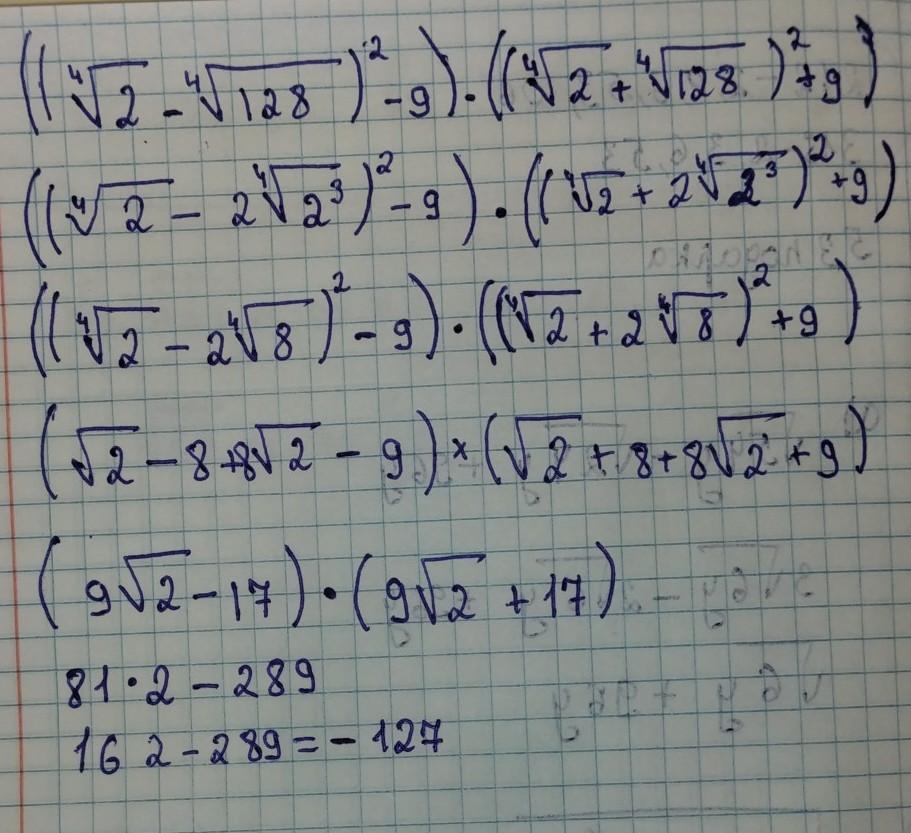 ((∜2 - ∜128)² - 9) · ((∜2 + ∜128)² + 9)
((∜2 - 2∜2³)² - 9) · ((∜2 + 2∜2³)² + 9)
((∜2 - 2∜8)² - 9) · ((∜2 + 2∜8)² + 9)
(√2 - 8 + 8√2 - 9) × (√2 + 8 + 8√2 + 9)
(9√2 - 17) · (9√2 + 17)
81 · 2 - 289
162 - 289 = - 127